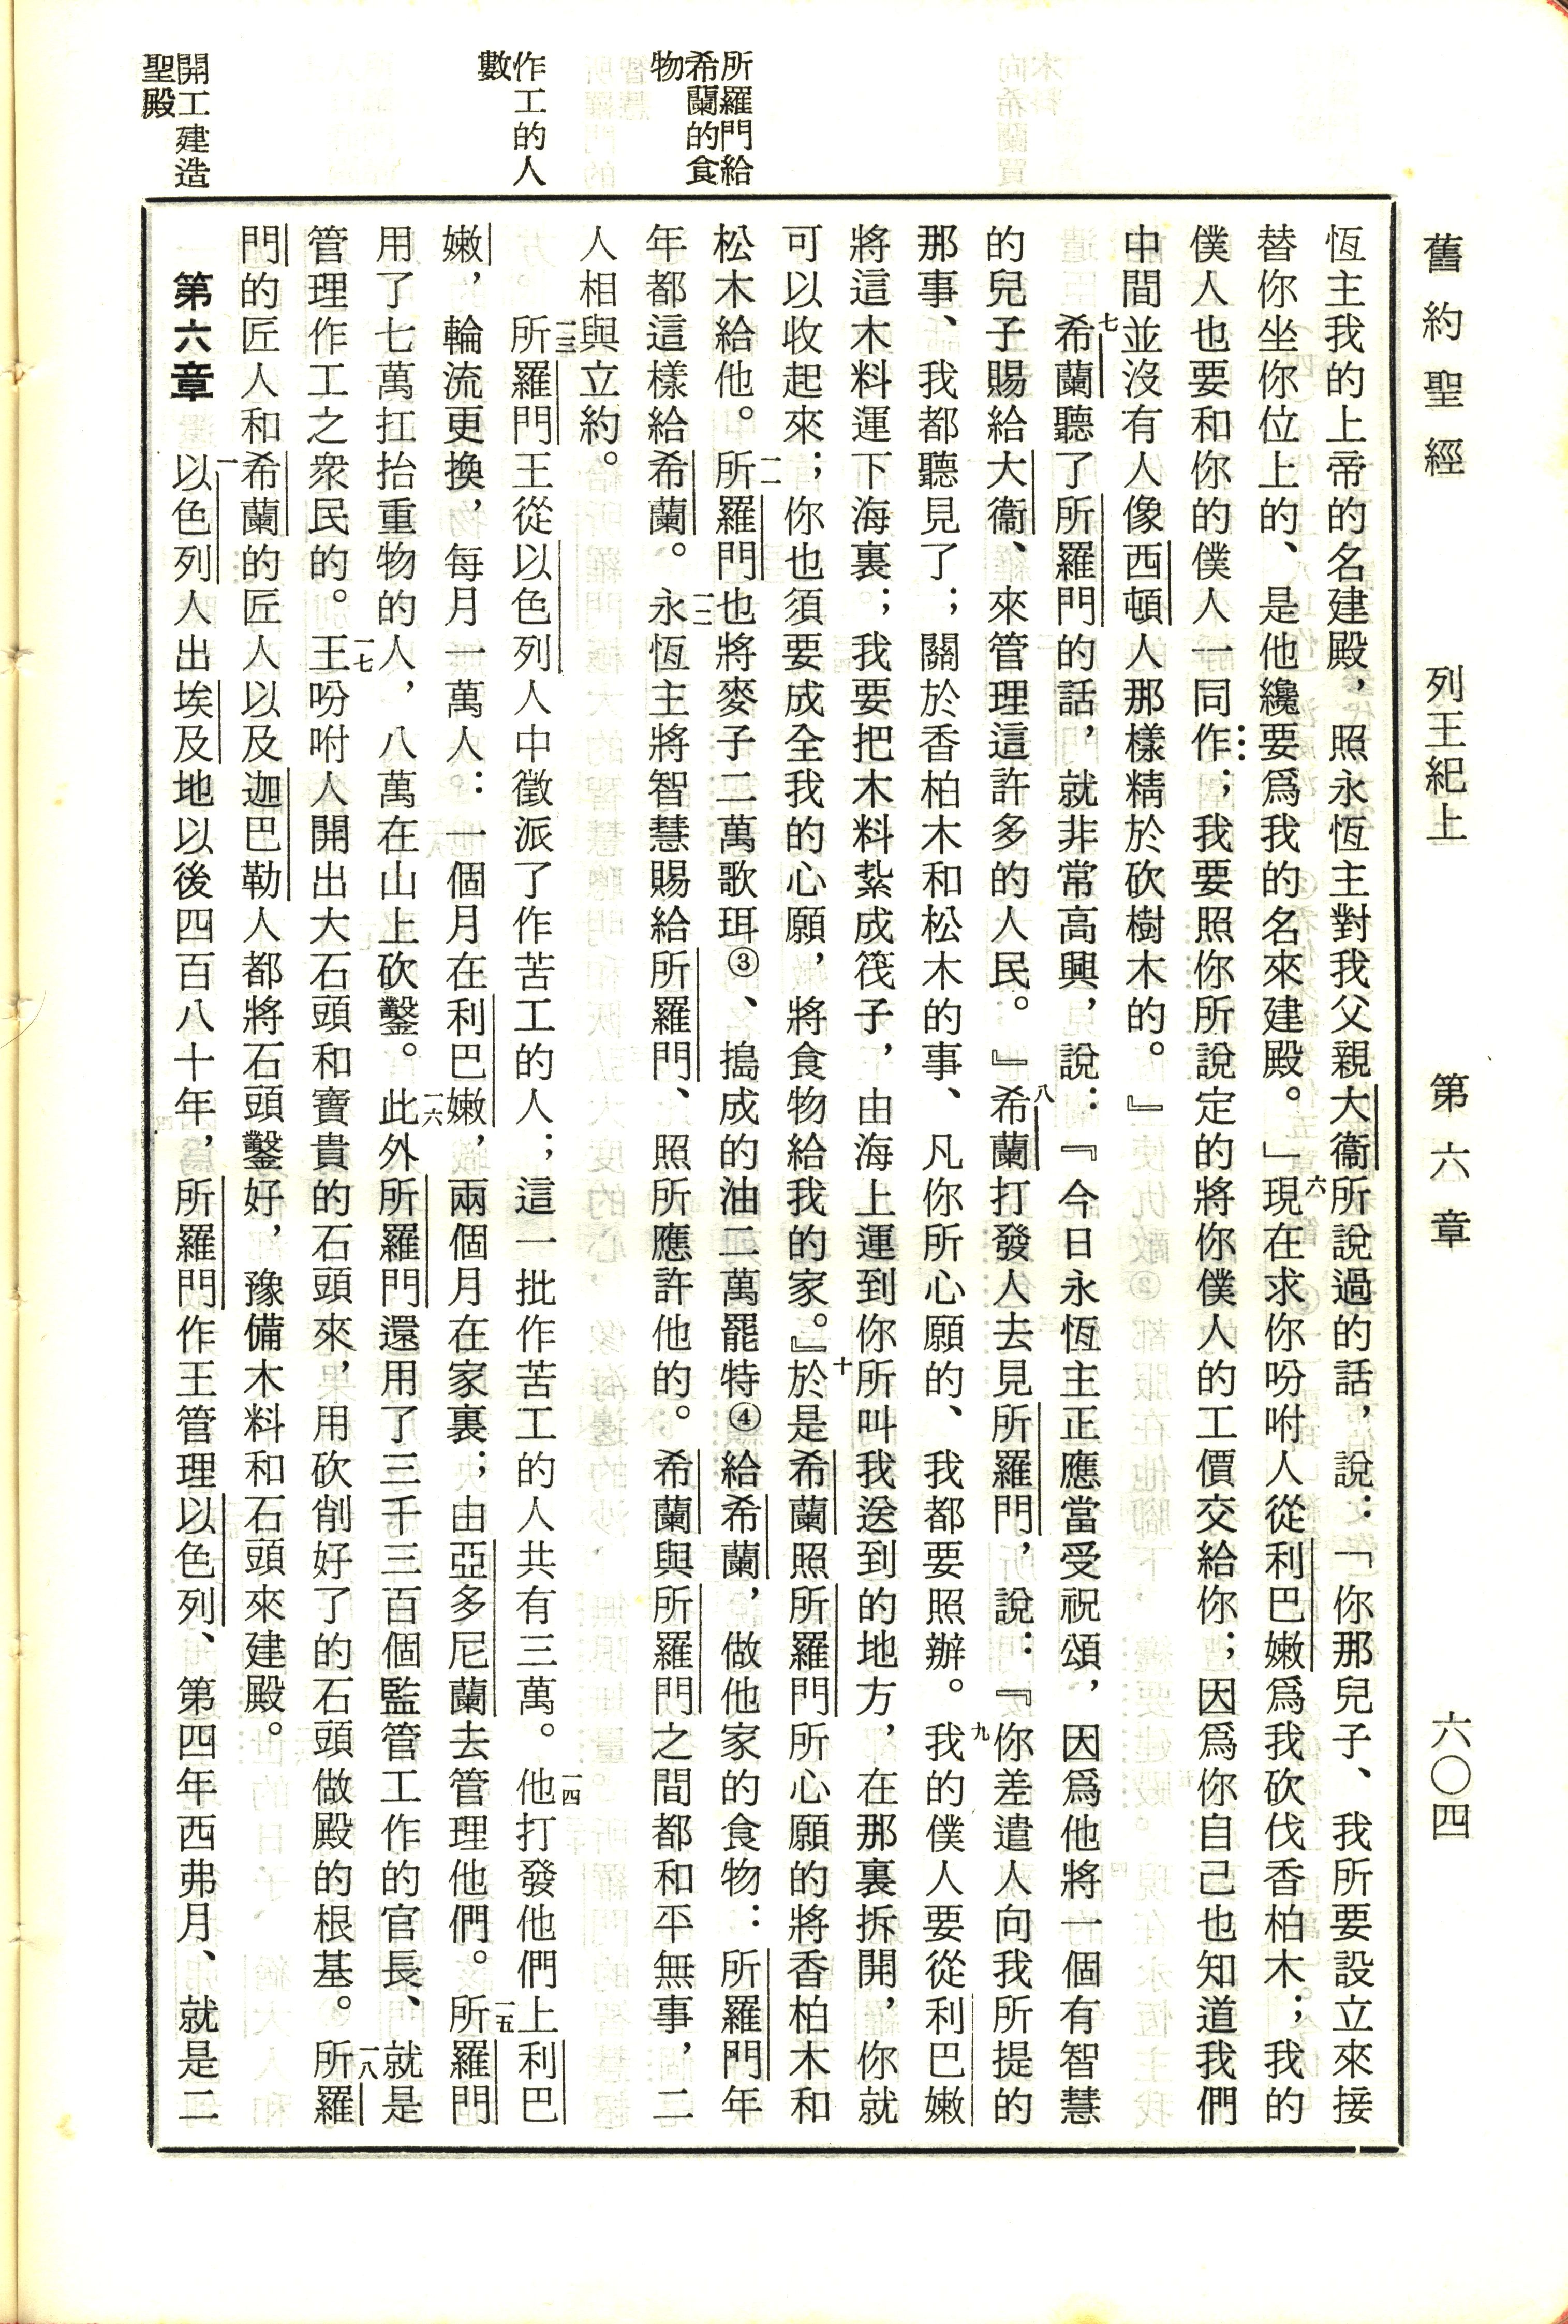 舊約聖經　列王紀上　第六章　六〇四
所羅門給
希蘭的食
物
作工的人
數
開工建造
聖殿
恆主我的上帝的名建殿，照永恆主對我父親大衞所說過的話，說：「你那兒子、我所要設立來接
替你坐你位上的、是他纔要爲我的名來建殿。」六現在求你吩咐人從利巴嫩爲我砍伐香柏木；我的
僕人也要和你的僕人一同作；我要照你所說定的將你僕人的工價交給你；因爲你自己也知道我們
中間並沒有人像西頓人那樣精於砍樹木的。』
七希蘭聽了所羅門的話，就非常高興，說：『今日永恆主正應當受祝頌，因爲他將一個有智慧
的兒子賜給大衞、來管理這許多的人民。』八希蘭打發人去見所羅門，說：『你差遣人向我所提的
那事、我都聽見了；關於香柏木和松木的事、凡你所心願的、我都要照辦。九我的僕人要從利巴嫩
將這木料運下海裏；我要把木料紮成筏子，由海上運到你所叫我送到的地方，在那裏拆開，你就
可以收起來；你也須要成全我的心願，將食物給我的家。』十於是希蘭照所羅門所心願的將香柏木和
松木給他。一一所羅門也將麥子二萬歌珥③、搗成的油二萬罷特④給希蘭，做他家的食物：所羅門年
年都這樣給希蘭。一二永恆主將智慧賜給所羅門、照所應許他的。希蘭與所羅門之間都和平無事，二
人相與立約。
一三所羅門王從以色列人中徵派了作苦工的人；這一批作苦工的人共有三萬。一四他打發他們上利巴
嫩，輪流更換，每月一萬人：一個月在利巴嫩，兩個月在家裏；由亞多尼蘭去管理他們。一五所羅門
用了七萬扛抬重物的人，八萬在山上砍鑿。一六此外所羅門還用了三千三百個監管工作的官長、就是
管理作工之衆民的。一七王吩咐人開出大石頭和寶貴的石頭來，用砍削好了的石頭做殿的根基。一八所羅
門的匠人和希蘭的匠人以及迦巴勒人都將石頭鑿好，豫備木料和石頭來建殿。
第六章　一以色列人出埃及地以後四百八十年，所羅門作王管理以色列、第四年西弗月、就是二